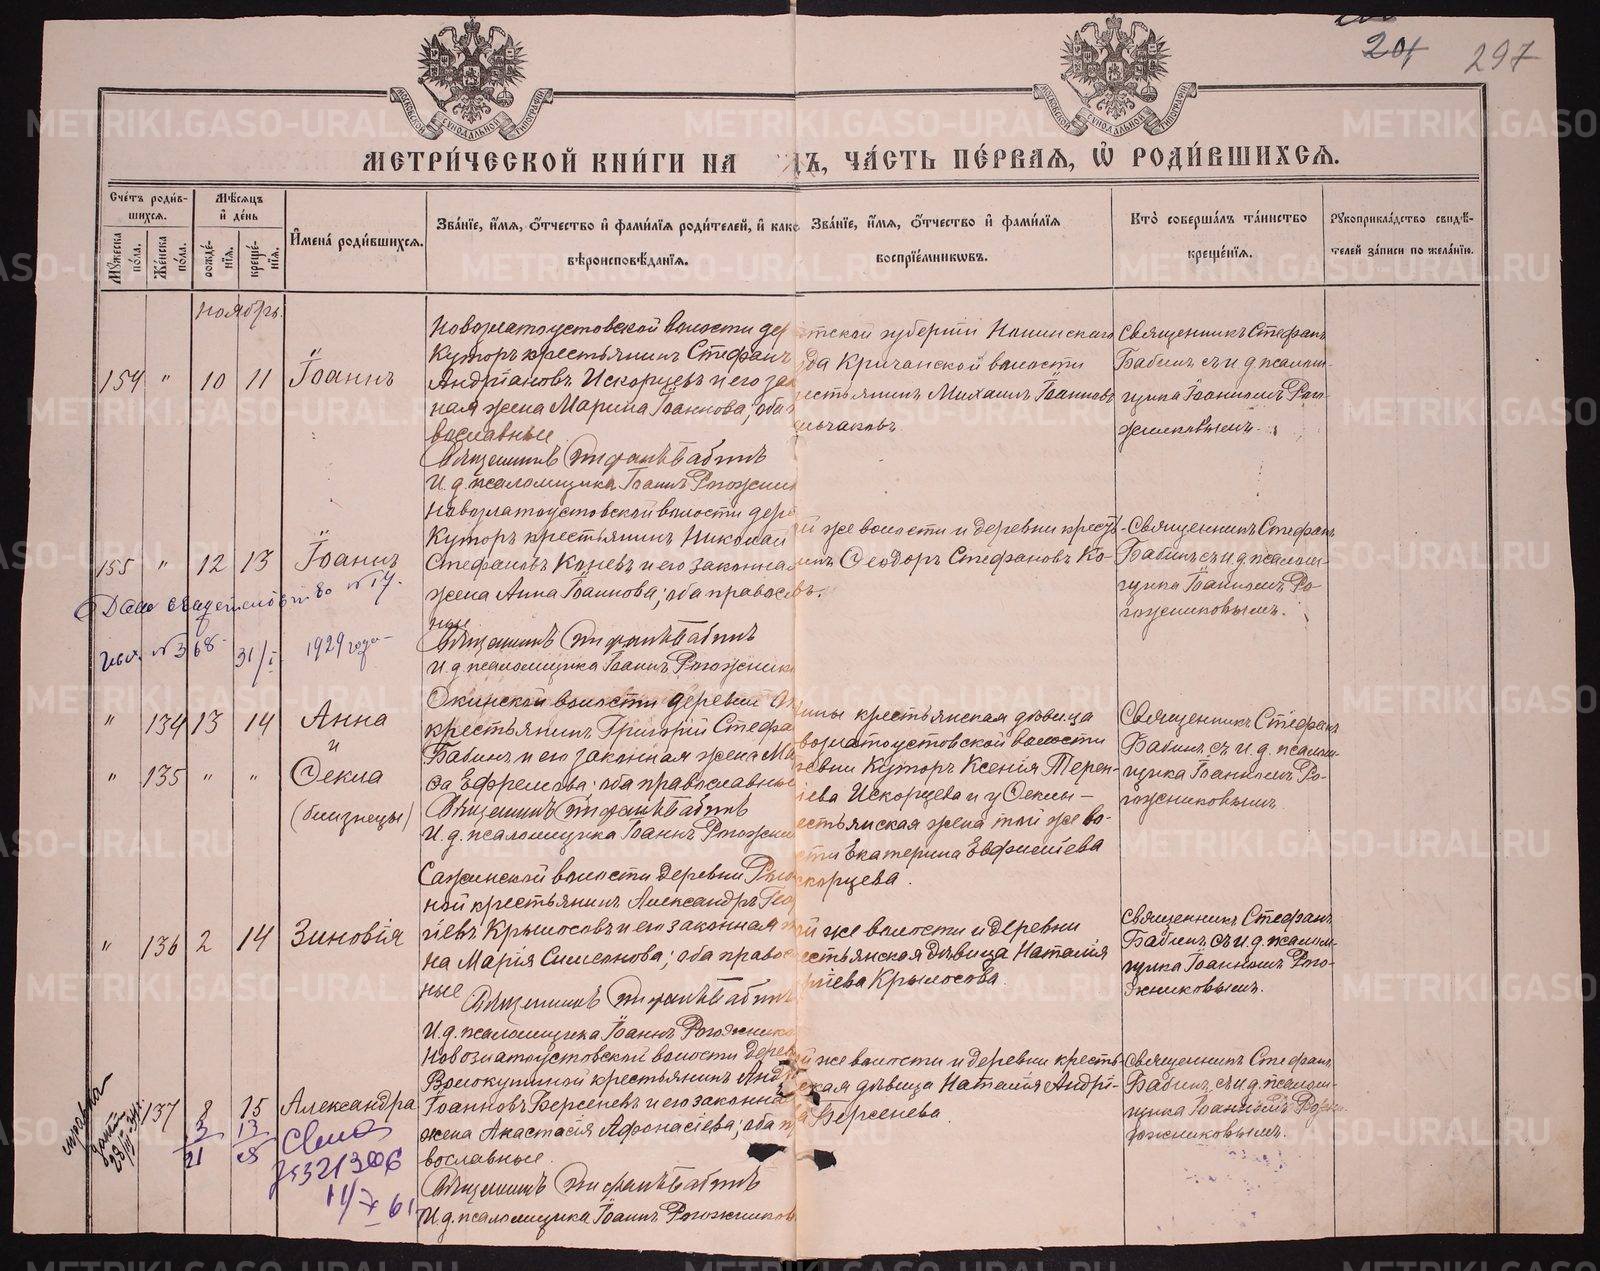 201 297
МЕТРИ́ЧЕСКОЙ КНИ́ГИ НА ДЪ, ЧА́СТЬ ПЕ́РВАЯ, Ѡ РОДИ́ВШИХСЯ.
Сче́тъ роди́вшихся.
Мѹ́жеска по́ла.
Же́нска по́ла.
Мѣ́сяцъ и́ де́нь
рожде́нїя.
креще́нїя.
И́мена́ роди́вшихся.
Зва́нїе, и́мя, о́тчество и́ фами́лїя роди́телей, и́ како
вѣроисповѣ́данїя.
Зва́нїе, и́мя, о́тчество и́ фами́лїя
воспрїе́мниковъ.
Кто̀ соверша́лъ та́инство
креще́нїя.
Рꙋкоприкла́дство свидѣ́-
телей за́писи по жела́нїю.
Ноябрь.
154 " 10 11 Іоаннъ
Новозлатоустовской волости дер
Куторъ крестьянинъ Стефанъ
Андріановъ Искорцевъ и его зак
ная жена Марина Іоаннова; оба
вославные.
Священникъ Стефанъ Бабинъ
И. д. псаломщика Іоаннъ Рогожник
тской губерніи
да Кричанской волости
естьянинъ Михаилъ Іоанновъ
Священникъ Стефанъ
Бабинъ съ и. д. псалом-
щика Іоанномъ Рого-
жниковымъ.
155 " 12 13 Іоаннъ
Новозлатоустовской волости дере
Куторъ крестьянинъ Николай
Стефановъ Коневъ и его законная
жена Анна Іоаннова; оба правосл
ные
Священникъ Стефанъ Бабинъ
И. д. псаломщика Іоаннъ Рогожник
й же волости и деревни кресть-
инъ Ѳеодоръ Стефановъ Ко-
въ.
Священникъ Стефанъ
Бабинъ съ и. д. псалом-
щика Іоанномъ Ро-
гожниковымъ.
Дано свидетельство № 14.
исх. № 368 31/I 1929 года
" 134 13 14 Анна
и
" 135 " " Ѳекла
(близнецы)
Окинской волости деревни
крестьянинъ Григорій Стефа
Бабинъ и его законная жена Ма
ѳа Ефремова; оба православные
Священникъ Стефанъ Бабинъ
И. д. псаломщика Іоаннъ Рогожни
ины крестьянская дѣвица
возлатоустовской волости
евни Куторъ Ксенія Терен-
іева Искорцева и у Ѳеклы —
естьянская жена той же во-
сти Екатерина Евфиміева
скорцева.
Священникъ Стефанъ
Бабинъ съ и. д. псалом-
щика Іоанномъ Ро-
гожниковымъ.
" 136 2 14 Зиновія
Сажинской волости деревни
ной крестьянинъ Александръ Гео
гіевъ Крылосовъ и его законная
на Марія Симеонова; оба правос
ные
Священникъ Стефанъ Бабинъ
И. д. псаломщика Іоаннъ Рогожник
й же волости и деревни
естьянская дѣвица Наталія
ргіева Крылосова.
Священникъ Стефанъ
Бабинъ съ и. д. псалом-
щика Іоанномъ Рого-
жниковымъ.
137 8 15 Александра
Новозлатоустовской волости дерев
Волокушиной крестьянинъ Андр
Іоанновъ Берсеневъ и его законна
жена Анастасія Афонасіева; оба п
вославные.
Священникъ Стефанъ Бабинъ
И. д. псаломщика Іоаннъ Рогожников
й же волости и деревни кресть-
ская дѣвица Наталія Андрі-
а Берсенева.
Священникъ Стефанъ
Бабинъ съ и. д. псалом-
щика Іоанномъ
гожниковымъ.
3 13
21 28
321306
11/X 61